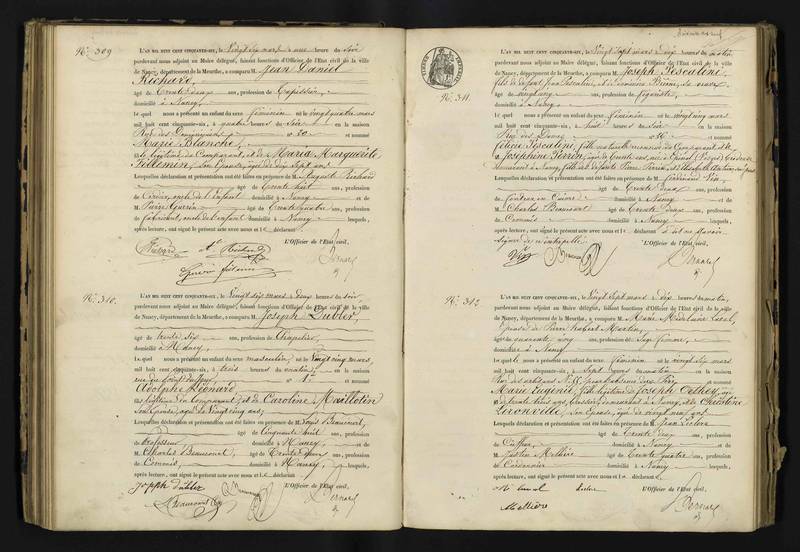 N.° 309
L'AN MIL HUIT CENT CINQUANTE-SIX, le Vingt six mars à une heure du soir
pardevant nous adjoint au Maire délégué, faisant fonctions d'Officier de l'Etat civil de la ville
de Nancy, département de la Meurthe, a comparu M. Jean Daniel
Richard,
âgé de trente deux ans, profession de Tapissier,
domicilié à Nancy,
Lequel nous a présenté un enfant du sexe féminin né le vingt quatre mars
mil huit cent cinquante-six, à quatre heures du soir en la maison
Rue des Dominicains n° 20 et nommé
Marie Blanche,
fille légitime du Comparant et de Maria Marguerite
son épouse, âgée de dix sept ans
Lesquelles déclaration et présentation ont été faites en présence de M. Auguste Richard
âgé de trente huit ans, profession
de oncle de l'enfant domicilié à Nancy et de
M. Pierre Guérin âgé de trente quatre ans, profession
de fabricant, oncle de l'enfant domicilié à Nancy lesquels,
après lecture, ont signé le présent acte avec nous et le déclarant
L'Officier de l'Etat civil,
Richard A.te Richard
Bernard
N.° 310.
L'AN MIL HUIT CENT CINQUANTE-SIX, le Vingt six mars à deux heures du soir,
pardevant nous adjoint au Maire délégué, faisant fonctions d'Officier de l'Etat civil de la ville
de Nancy, département de la Meurthe, a comparu M. Joseph Dubler,
âgé de trente six ans, profession de Chapelier,
domicilié à Nancy,
Lequel nous a présenté un enfant du sexe masculin né le Vingt cinq mars,
mil huit cent cinquante-six, à trois heures du matin, en la maison
n° 1, et nommé
Adolphe Léonard
fils légitime du Comparant et de Caroline Maillotin
Son épouse, âgée de Vingt cinq ans;
Lesquelles déclaration et présentation ont été faites en présence de M. Louis Beaucourt,
âgé de Cinquante huit ans, profession
de professeur domicilié à Nancy, et de
M. Charles Beaucourt âgé de trente deux ans, profession
de Commis, domicilié à Nancy, lesquels,
après lecture, ont signé le présent acte avec nous et le déclarant.
L'Officier de l'Etat civil,
Joseph dubler
Beaucourt
Bernard
N.° 311.
L'AN MIL HUIT CENT CINQUANTE-SIX, le Vingt sept mars à dix heures du matin
pardevant nous adjoint au Maire délégué, faisant fonctions d'Officier de l'Etat civil de la ville
de Nancy, département de la Meurthe, a comparu M. Joseph Pescalini,
âgé de vingt cinq ans, profession de figuriste,
domicilié à Nancy
Lequel nous a présenté un enfant du sexe féminin né le vingt cinq mars
mil huit cent cinquante-six, à huit heures du soir en la maison
Rue des Dames n° 16 et nommé
Félicie Pescalini, fille naturelle reconnue du Comparant et de
Joséphine Perrin,
Lesquelles déclaration et présentation ont été faites en présence de M. Ferdinand
âgé de trente deux ans, profession
de fondeur en Cuivre domicilié à Nancy et de
M. Charles Beaucourt âgé de trente deux ans, profession
de Commis domicilié à Nancy lesquels,
après lecture, ont signé le présent acte avec nous et le déclarant a dit ne savoir
signer de ce interpellé
L'Officier de l'Etat civil,
Bernard
N.° 312
L'AN MIL HUIT CENT CINQUANTE-SIX, le Vingt sept mars à dix heures du matin,
pardevant nous adjoint au Maire délégué, faisant fonctions d'Officier de l'Etat civil de la ville
de Nancy, département de la Meurthe, a comparu Marie Madelaine
Epouse de Pierre Hubert Martin,
âgée de quarante cinq ans, profession de Sage femme,
domiciliée à Nancy
Laquelle nous a présenté un enfant du sexe féminin né le vingt six mars
mil huit cent cinquante-six, à sept heures du matin en la maison
et nommé
Marie Eugénie, fille légitime de Joseph
et de Christine
Son épouse, âgée de vingt neuf ans
Lesquelles déclaration et présentation ont été faites en présence de M. Jean Leclerc
âgé de trente deux ans, profession
domicilié à Nancy et de
M. Justin Mellière âgé de trente quatre ans, profession
de Cordonnier domicilié à Nancy lesquels,
après lecture, ont signé le présent acte avec nous et la déclarante.
L'Officier de l'Etat civil,
leclerc
Mellière
Bernard